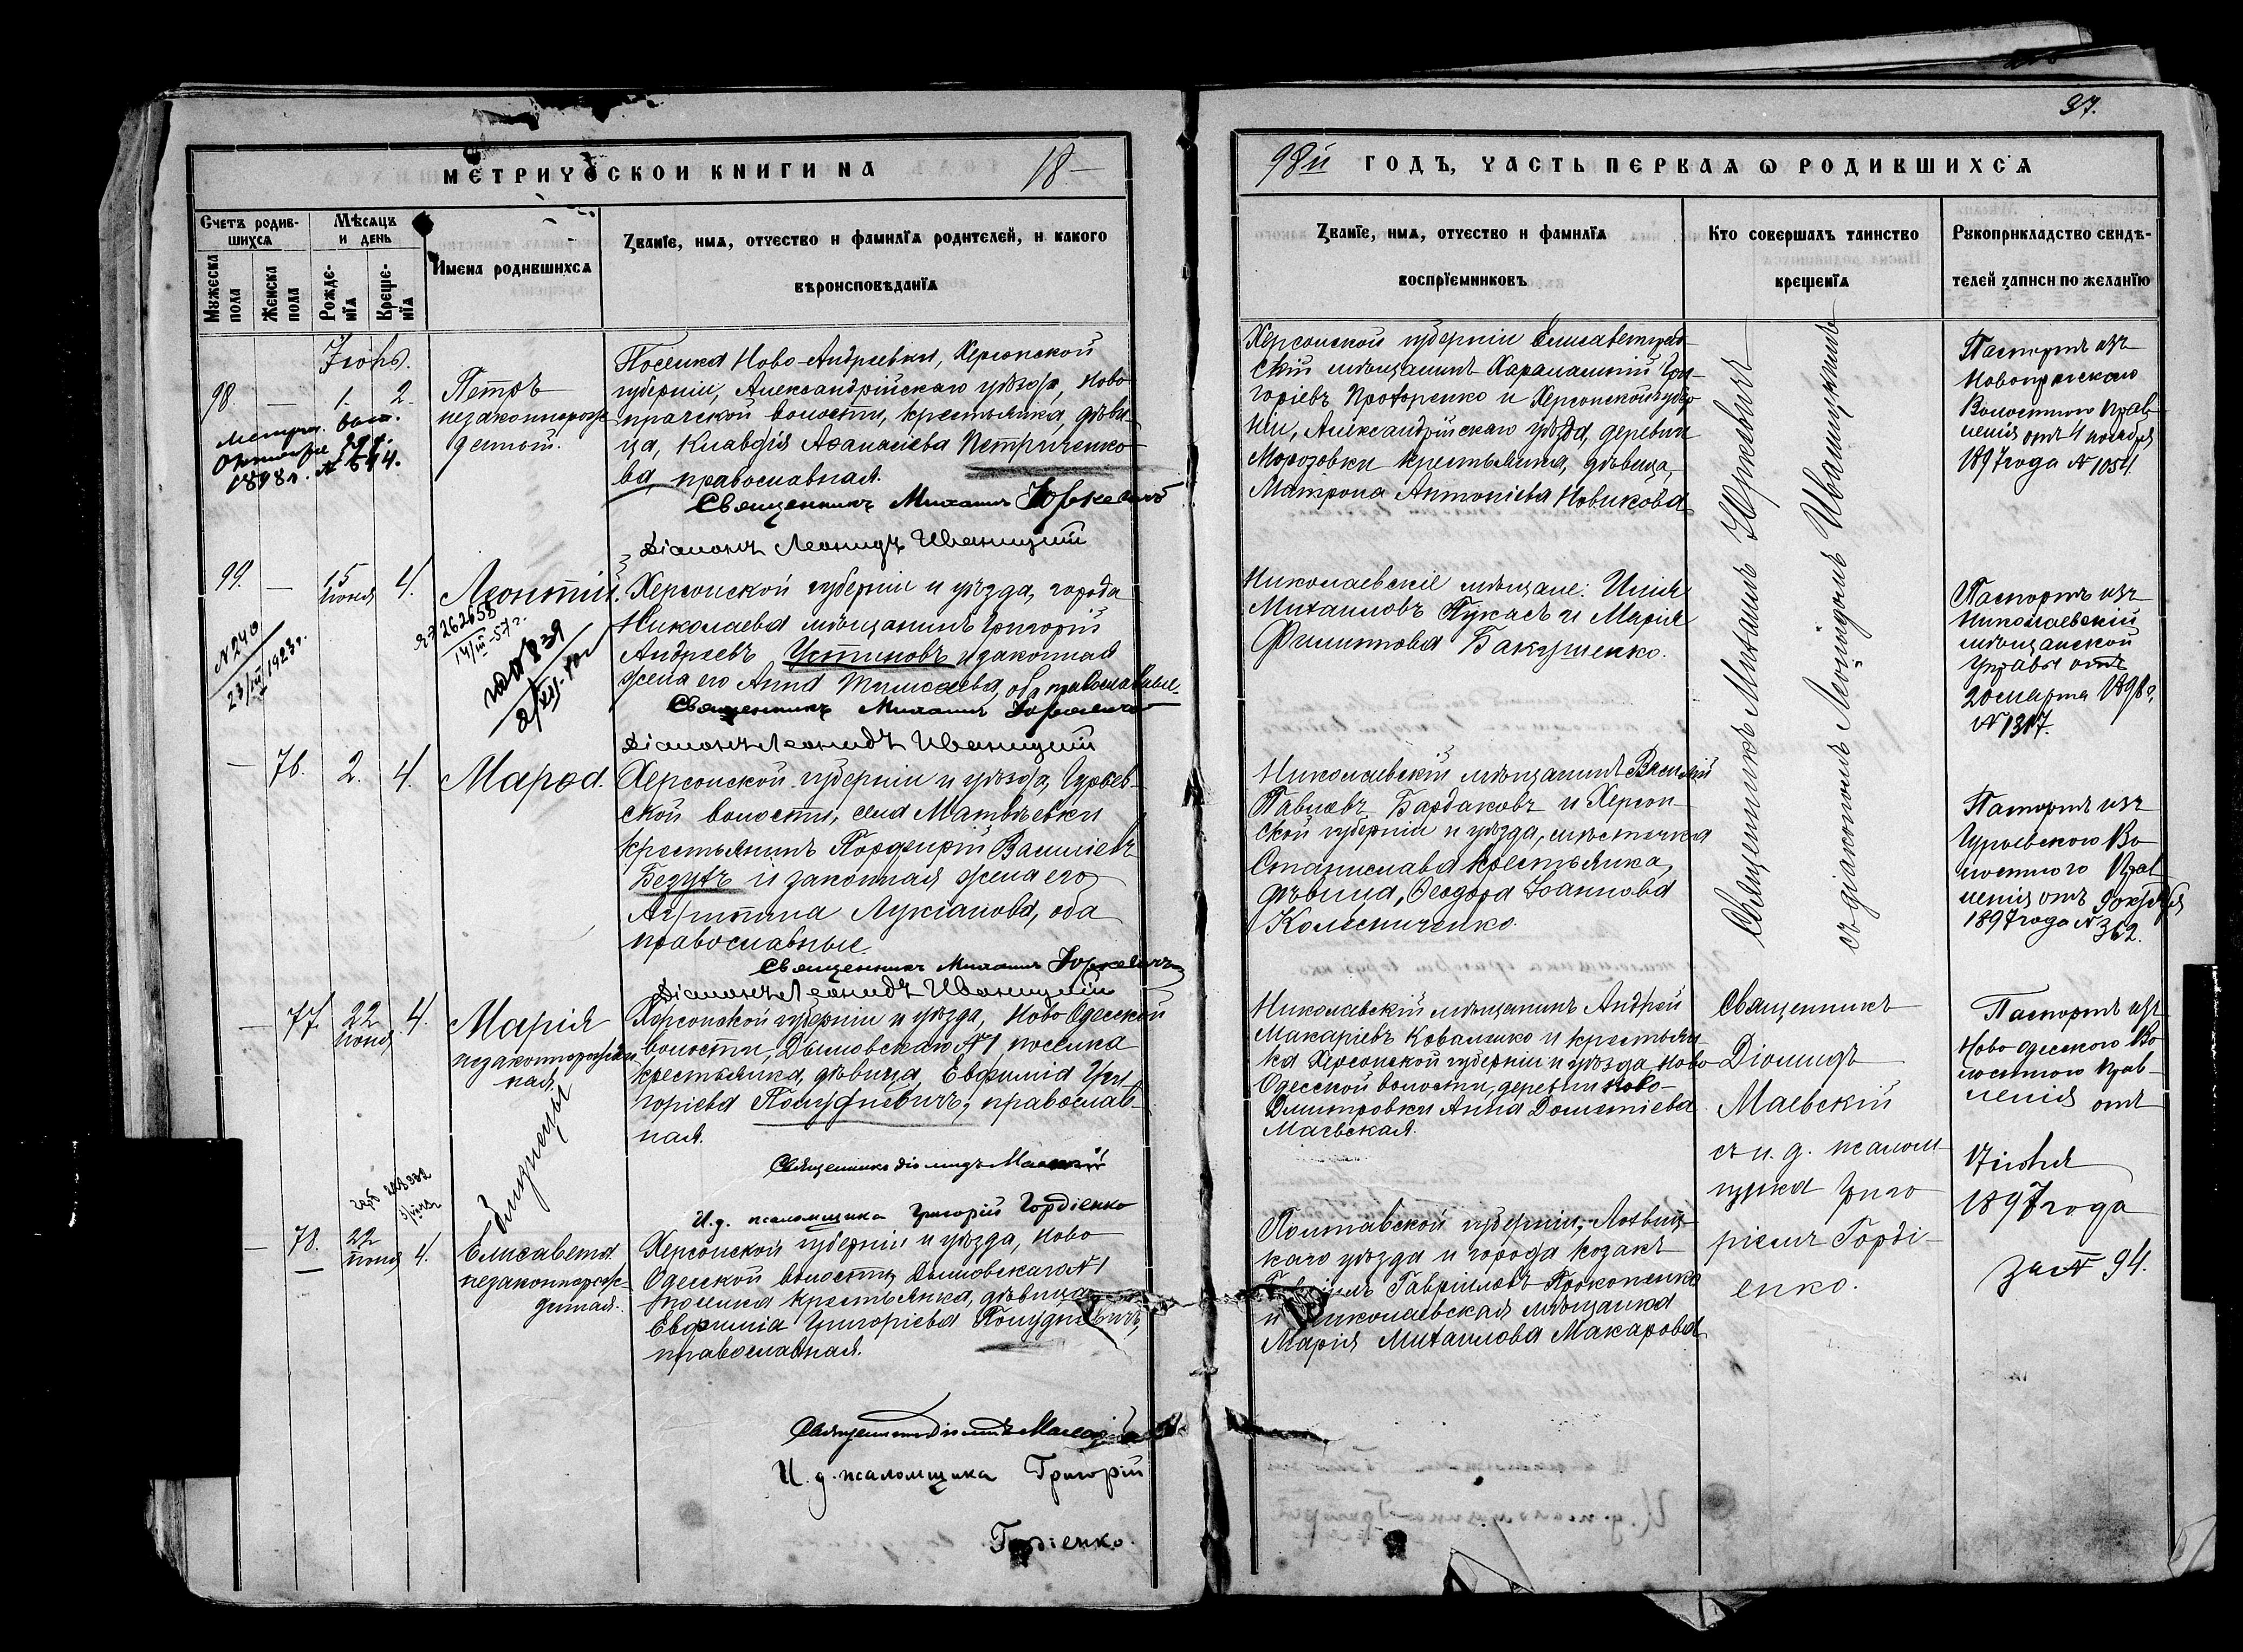 37.
МЕТРИЧЕСКОЙ КНИГИ НА 18
98й ГОДЪ, ЧАСТЬ ПЕРВАЯ Ѡ РОДИВШИХСЯ
Счетъ родив-
шихся
Мѣсяцъ
и день
Мужеска
пола
Женска
пола
Рожде-
нїя
Креще-
нїя
Имена родившихся
Званїе, имя, отчество и фамилїя родителей, и какого
вѣроисповѣданїя
Званїе, имя, отчество и фамилїя
воспрїемниковъ
Кто совершалъ таинство
крещенїя
Рукоприкладство свидѣ-
телей записи по желанїю
Іюнь.
98. — 1. 2.
Метрич. вып.
Октября
1898 г. № 644.
Петръ
незаконнорож-
денный.
Поселка Ново-Андреевки, Херсонской
губерніи, Александрійскаго уѣзда, Ново
прагской волости, крестьянка, дѣви-
ца, Клавдія Аѳанасіева Петриченко-
ва, православная.
Священникъ Михаилъ Юркевичъ
Діаконъ Леонидъ Иваницкій
Херсонской губерніи Елисаветград-
скій мѣщанинъ Харалампій Гри-
горіевъ Проторенко и Херсонской губер-
ніи, Александрійскаго уѣзда, деревни
Морозовки крестьянка, дѣвица,
Матрона Антоніева Новикова
Священникъ Михаилъ Юркевичъ
съ діакономъ Леонидомъ Иваницкимъ
Паспортъ изъ
Новопрагскаго
Волостного Прав-
ленія отъ 4 ноября
1897 года № 1054.
99. — 15 іюня 4.
N 240
23/III 1923 г.
Леонтій.
262658
14/III-57 г.
Херсонской губерніи и уѣзда, города
Николаева мѣщанинъ Григорій
Андреевъ Устиновъ и законная
жена его Анна оба православные.
Священникъ Михаилъ Юркевичъ
Діаконъ Леонидъ Иваницкій
Николаевскіе мѣщане: Илія
Михаиловъ Пукасъ и Марія
Филиппова Бакушенко.
Паспортъ изъ
Николаевской
мѣщанской
управы отъ
20 марта 1898 г.
№ 1317.
— 76. 2. 4.
Мара.
Херсонской губерніи и уѣзда, Гурьев-
ской волости, села Матвѣевки
крестьянинъ Порфирій Василіевъ
Безугъ и законная жена его
Агриппина Лукіанова, оба
православные.
Священникъ Михаилъ Юркевичъ
Діаконъ Леонидъ Иваницкій
Николаевскій мѣщанинъ Василій
Павловъ Бардаковъ и Херсон-
ской губерніи и уѣзда, мѣстечка
Станислава крестьянка,
дѣвица, Ѳеодора Іоаннова
Колесниченко.
Паспортъ изъ
Гурьевскаго Во
лостного Прав
ленія отъ 9 октября
1897 года №
362.
— 77. 22 іюня 4.
Марія
незаконнорожден
ная.
близнецы
Херсонской губерніи и уѣзда, Ново Одесской
волости, Дымовскаго №1 поселка
крестьянка, дѣвица, Евфимія Гри-
горіева Полудневичъ, православ-
ная.
Священникъ Діомидъ Маевскій
И.д. псаломщика Григорій Гордіенко
Николаевскій мѣщанинъ Андрей
Макаріевъ Коваленко и крестьян
ка Херсонской губерніи и уѣзда, Ново
Одесской волости, деревни Ново-
Дмитровки Анна Дометіева
Маевская.
Священникъ
Діомидъ
Маевскій
съ и. д. псалом
щика Григо
ріемъ Горді-
енко.
Паспортъ изъ
Ново Одесского Во
лостного Прав-
ленія отъ
17 іюня
1897 года
за № 94.
— 78. 22 іюня 4.
Елисавета
незаконнорож-
денная.
Херсонской губерніи и уѣзда, Ново
Одесской волости, Дымовскаго №1
поселка крестьянка, дѣвица
Евфимія Григоріева Полудневичъ,
православная.
Священникъ Діомидъ Маевскій
И. д. псаломщика Григорій
Гордіенко.
Полтавской губерніи, Лохвиц-
каго уѣзда и города козакъ
Гавріиловъ Прокопенко
и Николаевская мѣщанка
Марія Михаилова Макарова